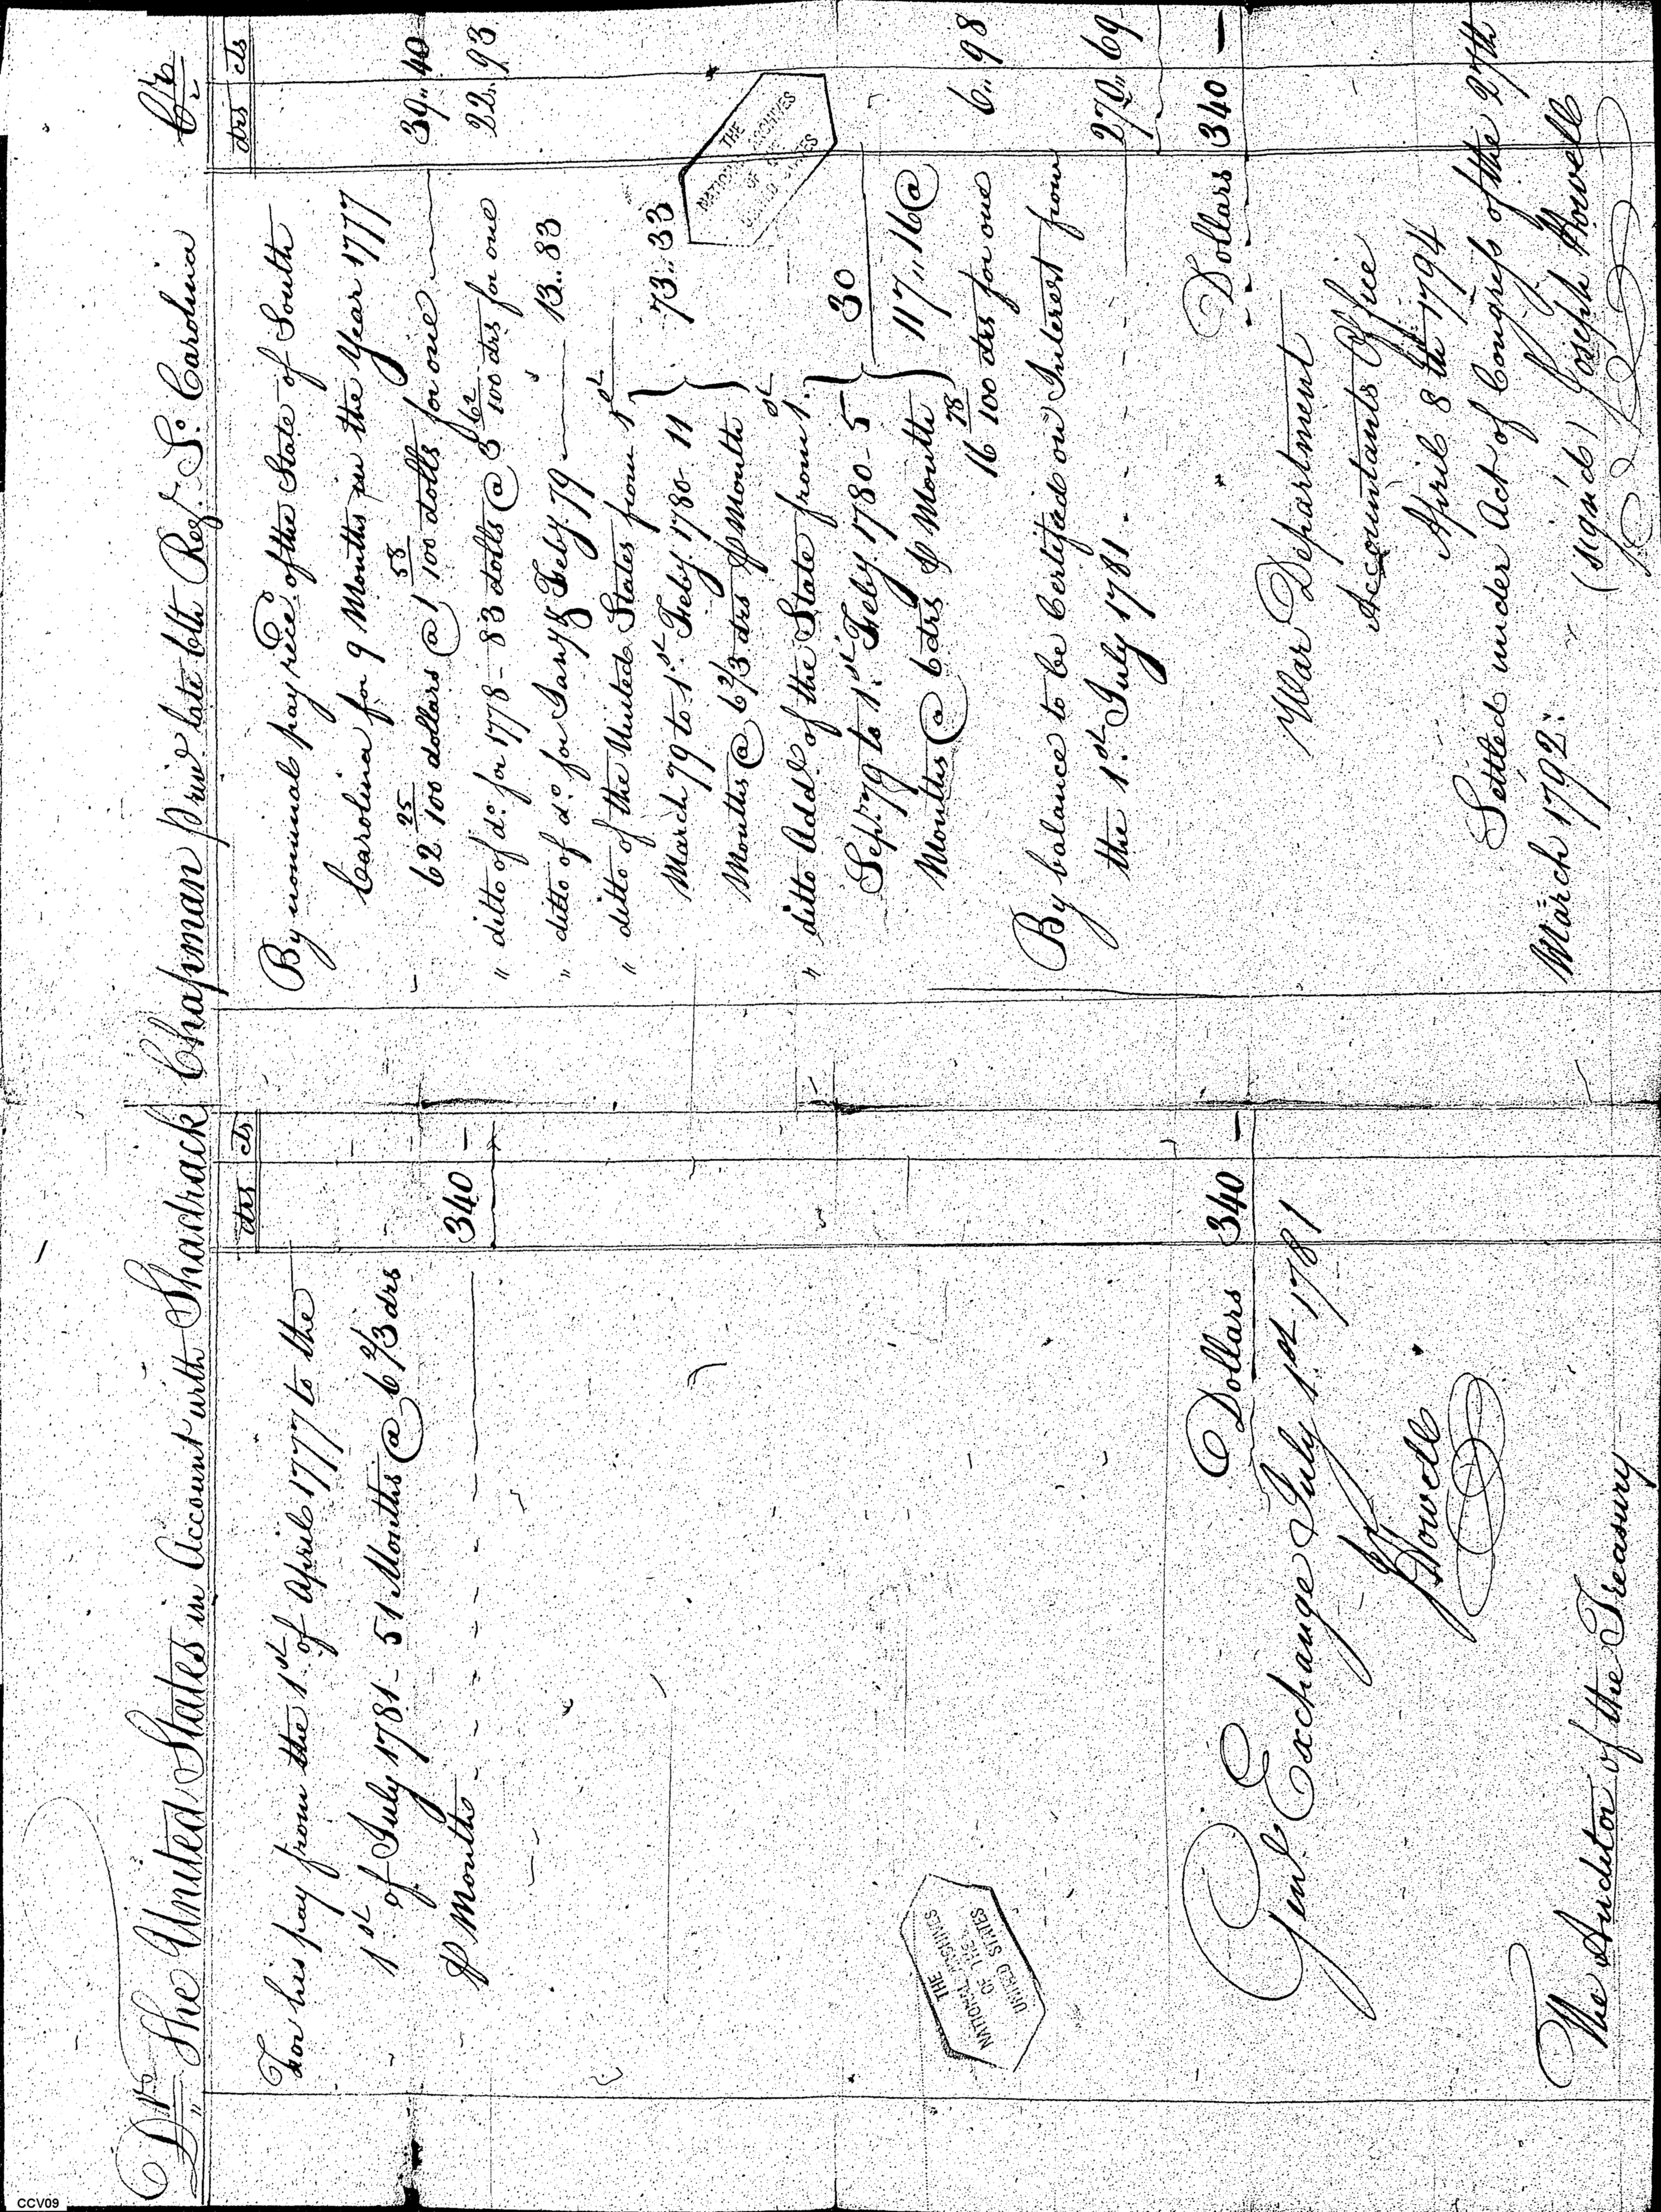 Dr. The United States in Account with Shadrack Chapman priv.e late 6th Reg.t S.o Carolina Cr.
drs cts
For his pay from the 1st of April 1777 to the
1st of July 1781 - 51 Months @ 6 2/3 drs
⅌ Month - - - - - 340 -
Dollars 340 -
Gen.l Exchange July 1st 1781
J Howell
The Auditor of the Treasury
THE
NATIONAL ARCHIVES
OF THE
UNITED STATES
drs cts
By nominal pay rece.d of the State of South
Carolina for 9 Months in the Year 1777
62 25/100 dollars @ 1 58/100 dolls for one — 39.. 40
" ditto of d.o for 1778 - 83 dolls @ 3 62/100 drs for one 22.. 93
" ditto of d.o for Jan.y & Feby. 79 — 13.. 83
" ditto of the United States from 1st
March 79 to 1.st Feby. 1780. 11 } 73.. 33
Months @ 6 2/3 drs ⅌ Month
" ditto Add.l of the State from 1.st
Sep.r 79 to 1.st Feby. 1780 - 5 } 30
Months @ 6 drs ⅌ Month } 117.. 16 @
16 78/100 drs for one 6.. 98
By balance to be Certified on Interest from
the 1.st July 1781 - - - 270.. 69
Dollars 340 —
War Department
Accountants Office
April 8th 1794
Settled under Act of Congress of the 27th
March 1792.
(signed) Joseph Howell
THE
NATIONAL ARCHIVES
OF THE
UNITED STATES
CCV09